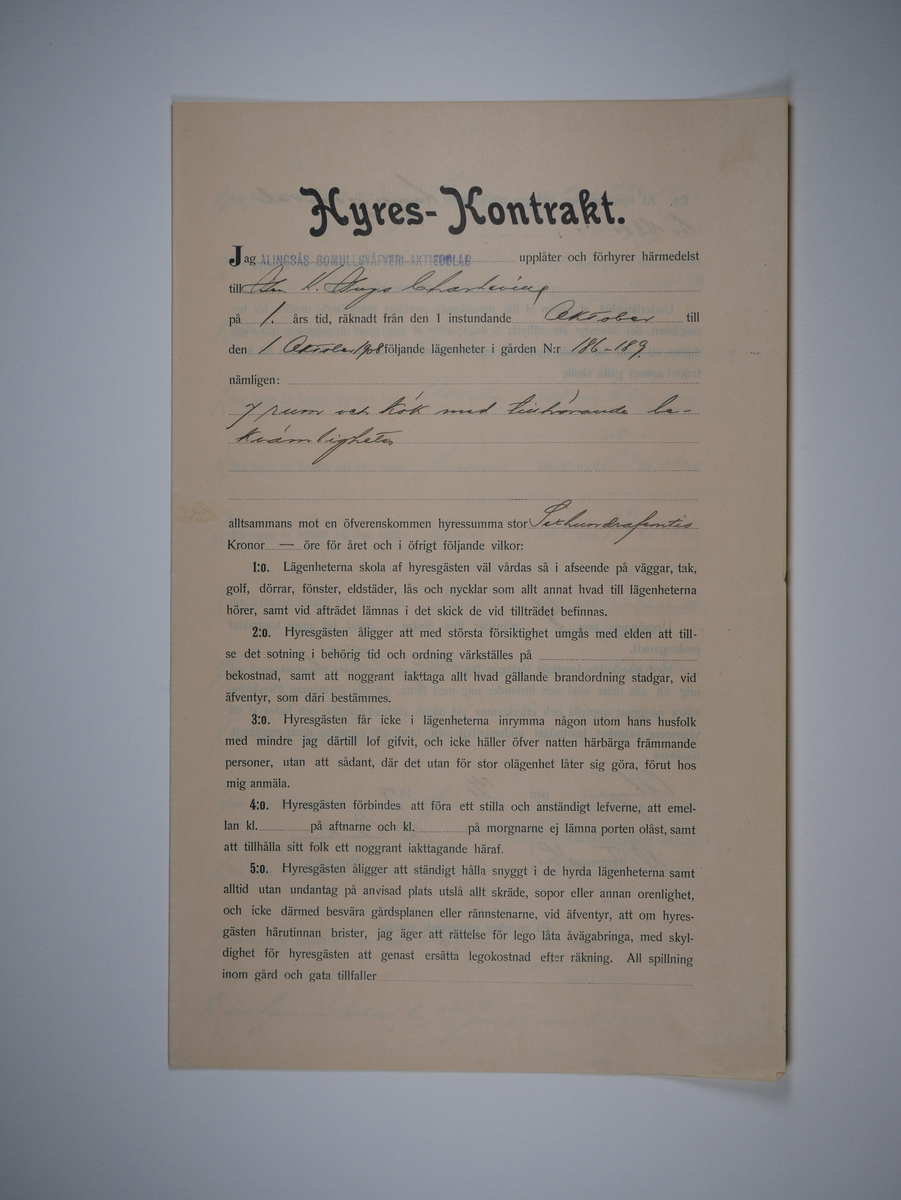 Hyres-Kontrakt.
Jag ALINGSÅS BOMULLSVÄFVERI-AKTIEBOLAG upplåter och förhyrer härmedelst
till Hugo
på 1. års tid, räknadt från den 1 instundande Oktober till
den 1 Oktober 1908 följande lägenheter i gården N:r 186-189
nämligen:
7 rum och kök med tillhörande be-
kvämligheter
alltsammans mot en öfverenskommen hyressumma stor Sexhundrafemtio
Kronor — öre för året och i öfrigt följande vilkor:
1:o. Lägenheterna skola af hyresgästen väl vårdas så i afseende på väggar, tak,
golf, dörrar, fönster, eldstäder, lås och nycklar som allt annat hvad till lägenheterna
hörer, samt vid afträdet lämnas i det skick de vid tillträdet befinnas.
2:o. Hyresgästen åligger att med största försiktighet umgås med elden att till-
se det sotning i behörig tid och ordning värkställes på
bekostnad, samt att noggrant iakttaga allt hvad gällande brandordning stadgar, vid
äfventyr, som däri bestämmes.
3:o. Hyresgästen får icke i lägenheterna inrymma någon utom hans husfolk
med mindre jag därtill lof gifvit, och icke häller öfver natten härbärga främmande
personer, utan att sådant, där det utan för stor olägenhet låter sig göra, förut hos
mig anmäla.
4:o. Hyresgästen förbindes att föra ett stilla och anständigt lefverne, att emel-
lan kl. på aftnarne och kl. på morgnarne ej lämna porten olåst, samt
att tillhålla sitt folk ett noggrant iakttagande häraf.
5:o. Hyresgästen åligger att ständigt hålla snyggt i de hyrda lägenheterna samt
alltid utan undantag på anvisad plats utslå allt skräde, sopor eller annan orenlighet,
och icke därmed besvära gårdsplanen eller rännstenarne, vid äfventyr, att om hyres-
gästen härutinnan brister, jag äger att rättelse för lego låta åvägabringa, med skyl-
dighet för hyresgästen att genast ersätta legokostnad efter räkning. All spillning
inom gård och gata tillfaller